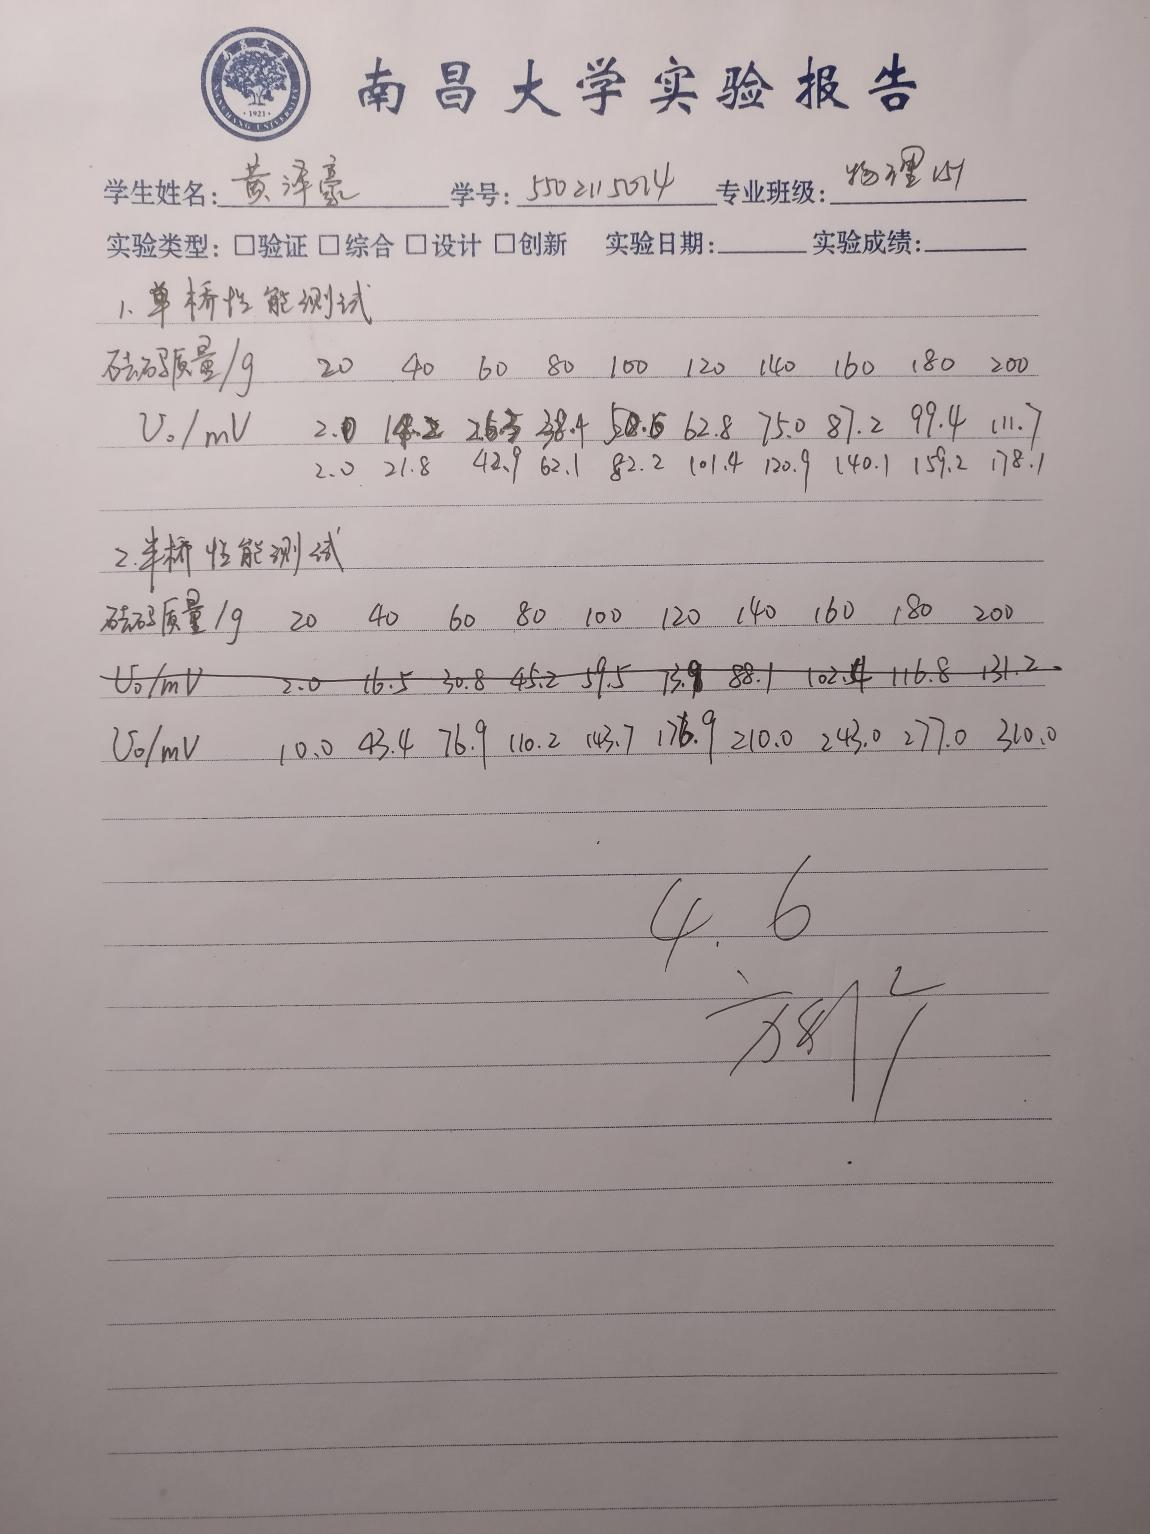 南昌大学实验报告
NANCHANG UNIVERSITY
·1921·
学生姓名: 黄泽豪 学号: 5502115014 专业班级: 物理151
实验类型: □验证 □综合 □设计 □创新 实验日期: 实验成绩:
1.单桥性能测试
砝码质量/g 20 40 60 80 100 120 140 160 180 200
U₀/mV 2.0 14.2 26.3 38.4 50.6 62.8 75.0 87.2 99.4 111.7
2.0 21.8 42.9 62.1 82.2 101.4 120.9 140.1 159.2 178.1
2.半桥性能测试
砝码质量/g 20 40 60 80 100 120 140 160 180 200
U₀/mV 2.0 16.5 30.8 45.2 59.5 73.9 88.1 102.4 116.8 131.2
U₀/mV 10.0 43.4 76.9 110.2 143.7 176.9 210.0 243.0 277.0 310.0
4.6